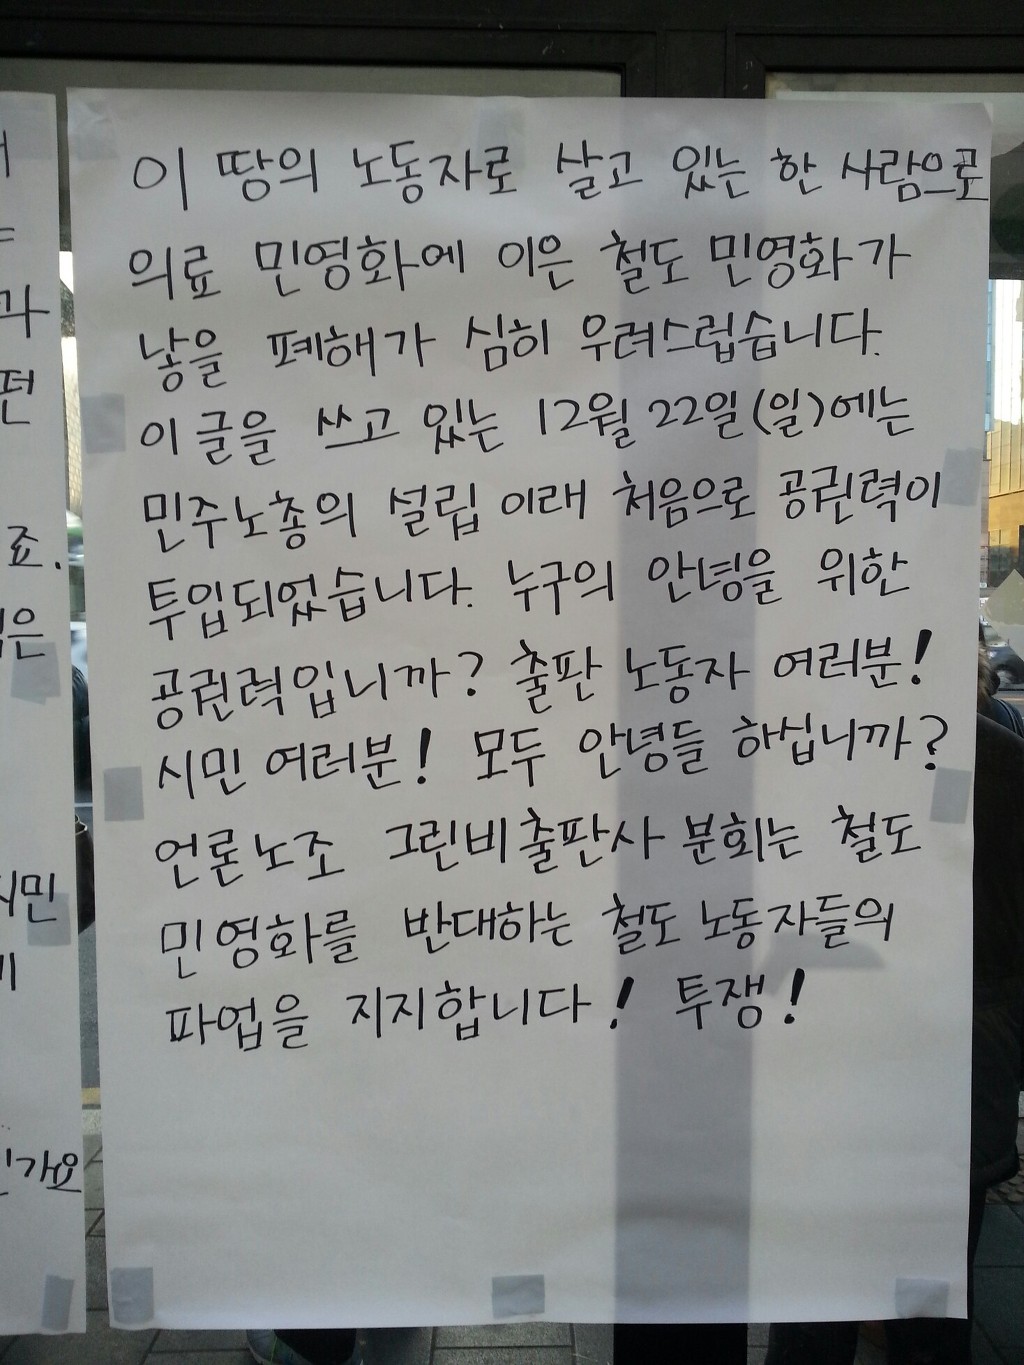 이 땅의 노동자로 살고 있는 한 사람으로
의료 민영화에 이은 철도 민영화가
낳을 폐해가 심히 우려스럽습니다.
이 글을 쓰고 있는 12월 22일(일)에는
민주노총의 설립 이래 처음으로 공권력이
투입되었습니다. 누구의 안녕을 위한
공권력입니까? 출판 노동자 여러분!
시민 여러분! 모두 안녕들 하십니까?
언론노조 그린비출판사 분회는 철도
민영화를 반대하는 철도 노동자들의
파업을 지지합니다! 투쟁!
과
죠.
은
시민
가요